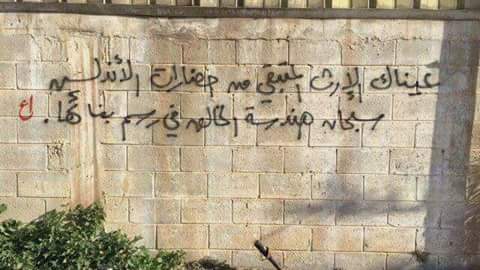 عيناك الإرث المتبقي من حضارات الأندلس
سبحان هندسة الخالق في رسم بنائها . ع